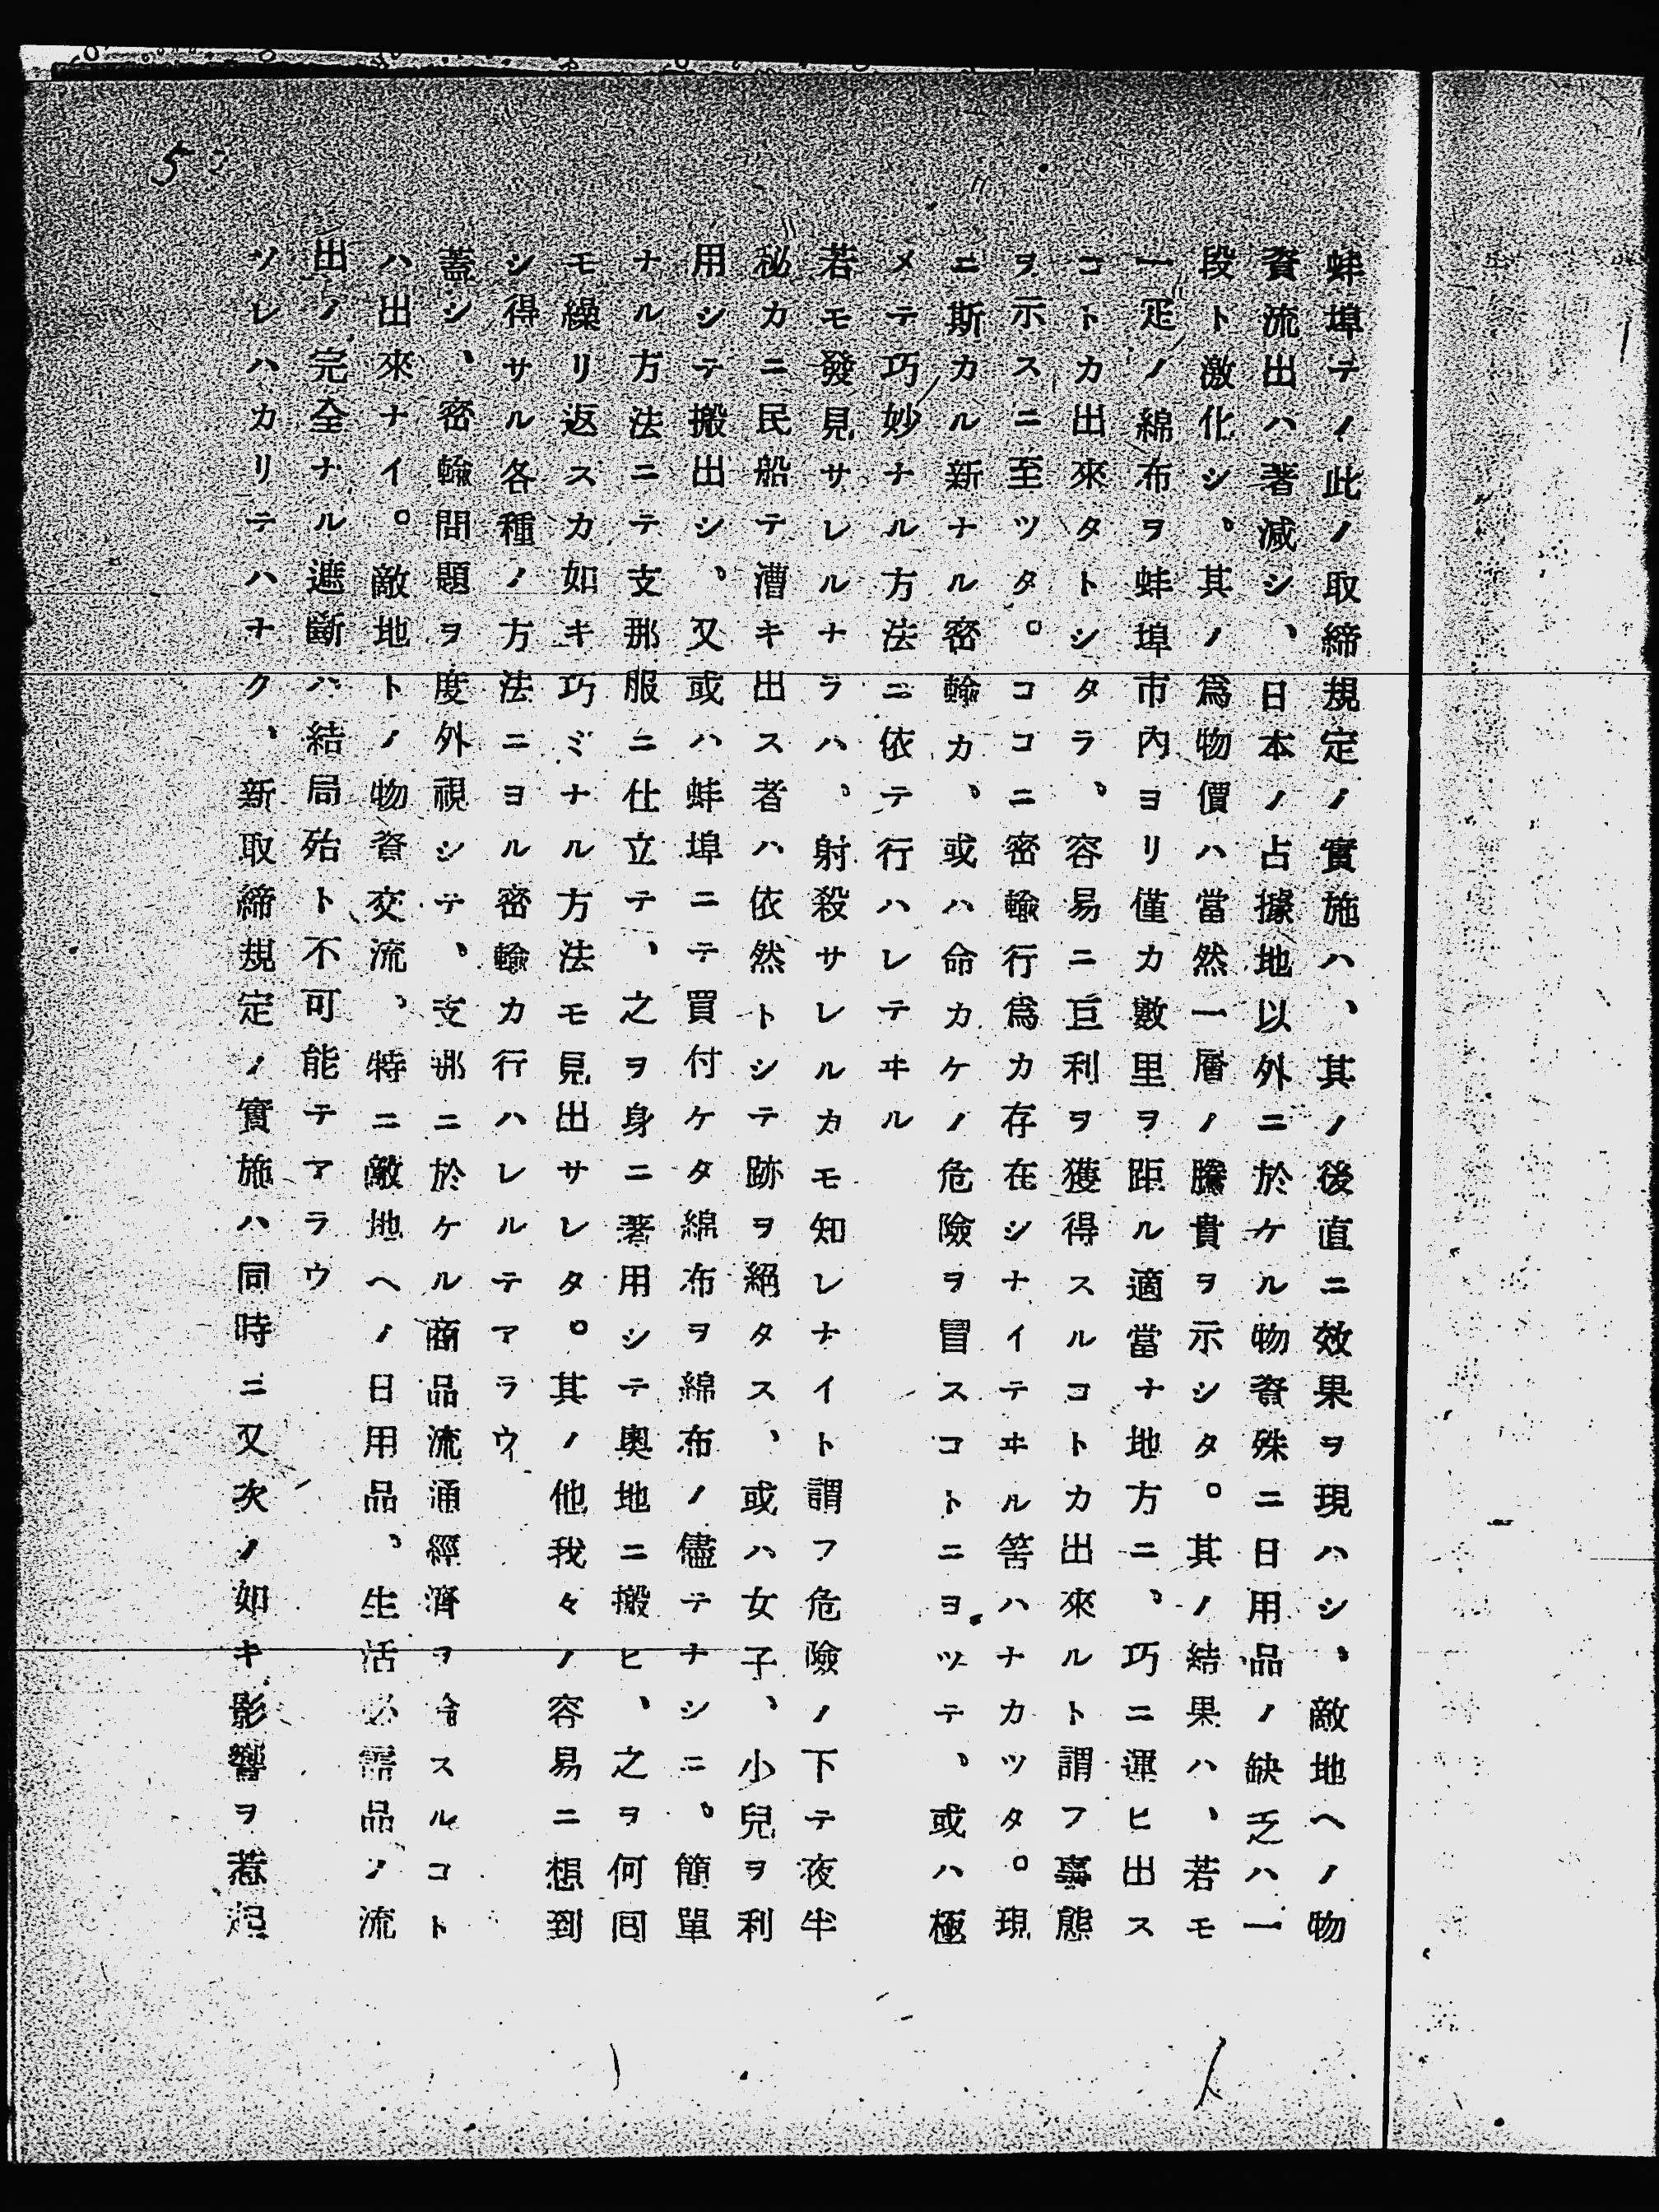 蚌埠テノ此ノ取締規定ノ實施ハ、其ノ後直ニ效果ヲ現ハシ、敵地ヘノ物
資流出ハ著減シ、日本ノ占據地以外ニ於ケル物資殊ニ日用品ノ缺乏ハ一
段ト激化シ、其ノ爲物價ハ當然一層ノ騰貴ヲ示シタ。其ノ結果ハ、若モ
一疋ノ綿布ヲ蚌埠市内ヨリ僅カ數里ヲ距ル適當ナ地方ニ、巧ニ運ヒ出ス
コトカ出來タトシタラ、容易ニ巨利ヲ獲得スルコトカ出來ルト謂フ事態
ヲ示スニ至ツタ。ココニ密輸行爲カ存在シナイテヰル筈ハナカツタ。現
ニ斯カル新ナル密輸カ、或ハ命カケノ危險ヲ冒スコトニヨツテ、或ハ極
メテ巧妙ナル方法ニ依テ行ハレテヰル
若モ發見サレルナラハ、射殺サレルカモ知レナイト謂フ危險ノ下テ夜半
秘カニ民船テ漕キ出ス者ハ依然トシテ跡ヲ絕タス、或ハ女子、小兒ヲ利
用シテ搬出シ、又或ハ蚌埠ニテ買付ケタ綿布ヲ綿布ノ儘テナシニ、簡單
ナル方法ニテ支那服ニ仕立テ、之ヲ身ニ著用シテ奥地ニ搬ヒ、之ヲ何囘
モ繰リ返スカ如キ巧ミナル方法モ見出サレタ。其ノ他我々ノ容易ニ想到
シ得サル各種ノ方法ニヨル密輸カ行ハレルテアラウ
蓋シ、密輸問題ヲ度外視シテ、支那ニ於ケル商品流通經濟ヲ論スルコト
ハ出來ナイ。敵地トノ物資交流、特ニ敵地ヘノ日用品、生活必需品ノ流
出ノ完全ナル遮斷ハ結局殆ト不可能テアラウ
ソレハカリテハナク、新取締規定ノ實施ハ同時ニ又次ノ如キ影響ヲ惹起